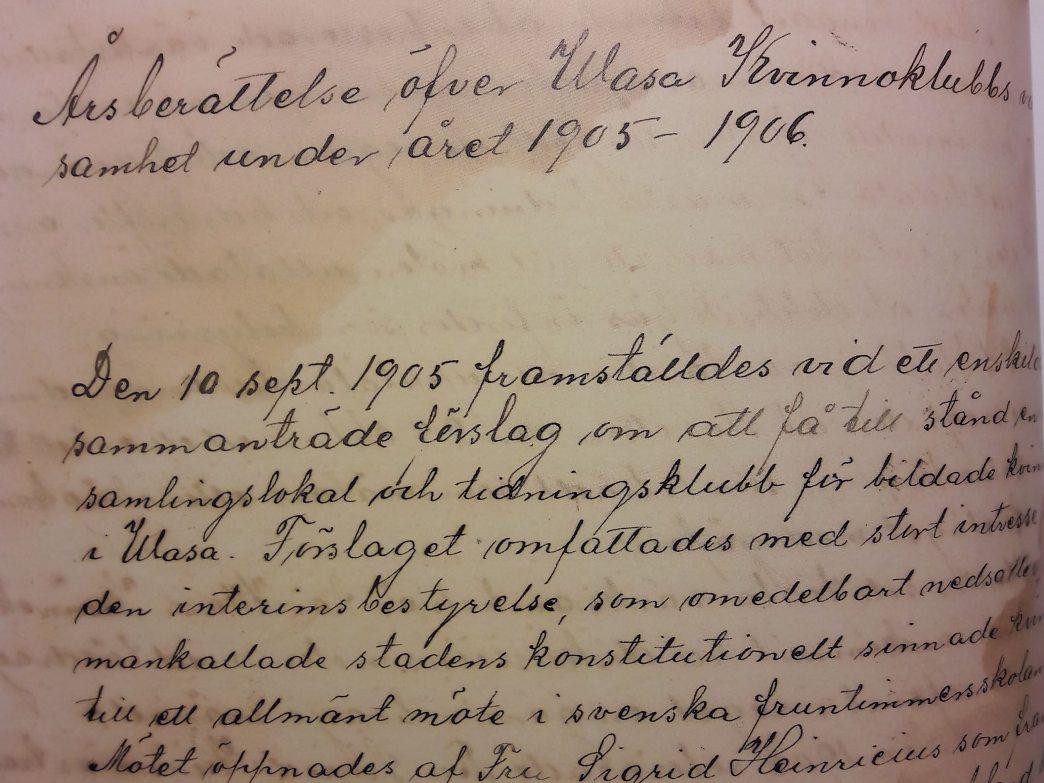 Årsberättelse öfver Wasa Kvinnoklubbs
samhet under året 1905 – 1906.
Den 10 sept. 1905 framställdes vid ett enskild
sammanträde förslag om att få till stånd en
samlingslokal och tidningsklubb för bildade kvin
i Wasa. Förslaget omfattades med stort intresse
den interimsbestyrelse, som omedelbart nedsattes
mankallade stadens konstitutionelt sinnade kvin
till ett allmänt möte i svenska fruntimmersskolan
Mötet öppnades af Fru Sigrid Heinricius som fram